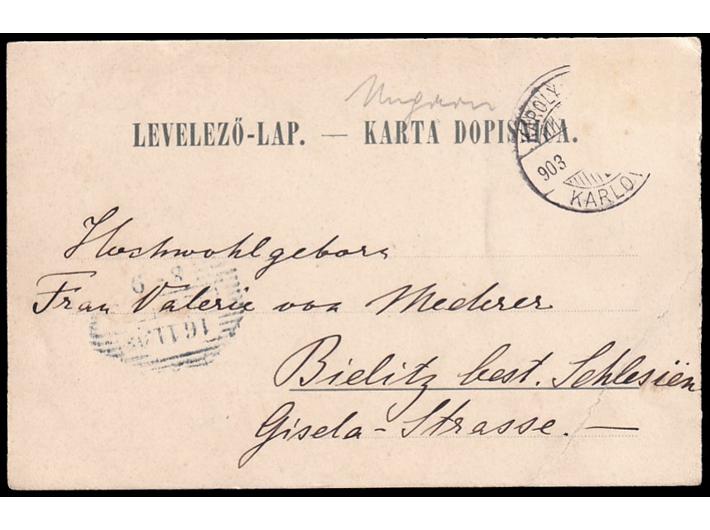 Ungarn
LEVELEZŐ-LAP. — KARTA DOPISNICA.
KÁROLY
903
KARLO
Hochwohlgebore
Frau Valerie von Mederer
Bielitz best. Schlesiën
Gisela-Strasse.—
8-9
16.11.